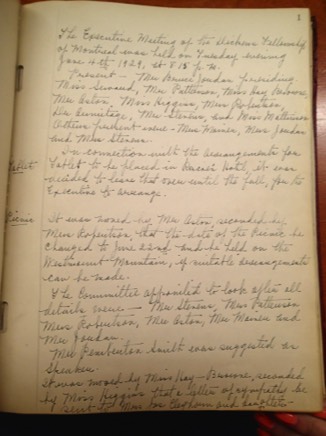 1
The Executive Meeting of the Dickens Fellowship
of Montreal was held on Tuesday evening
June 4th 1929, at 8.15 p.m.
Present – Mrs Jordan presiding
Miss Mrs Patterson, Miss Hay-Browne,
Mrs Aston, Miss Higgins, Miss Robertson,
Mrs Armitage, Mrs Stevens, and Miss
present were – Mrs Warren, Mrs Jordan
and Miss Stevens.
In connection with the arrangements for
Tablet
Tablet to be placed in Hotel, it was
decided to leave that over until the fall, for the
Executive to arrange.
Picnic
It was moved by Mrs Aston, seconded by
Miss Robertson that the date of the Picnic be
changed to June 22nd and be held on the
Westmount Mountain, if suitable arrangements
can be made.
The Committee appointed to look after all
details were – Mrs Stevens, Miss Patterson
Miss Robertson, Mrs Aston, Mrs and
Mrs Jordan.
Mrs Pemberton Smith was suggested as
Speaker.
It was moved by Miss Hay-Browne, seconded
by Miss Higgins that a letter of sympathy be
sent to Mrs and daughters